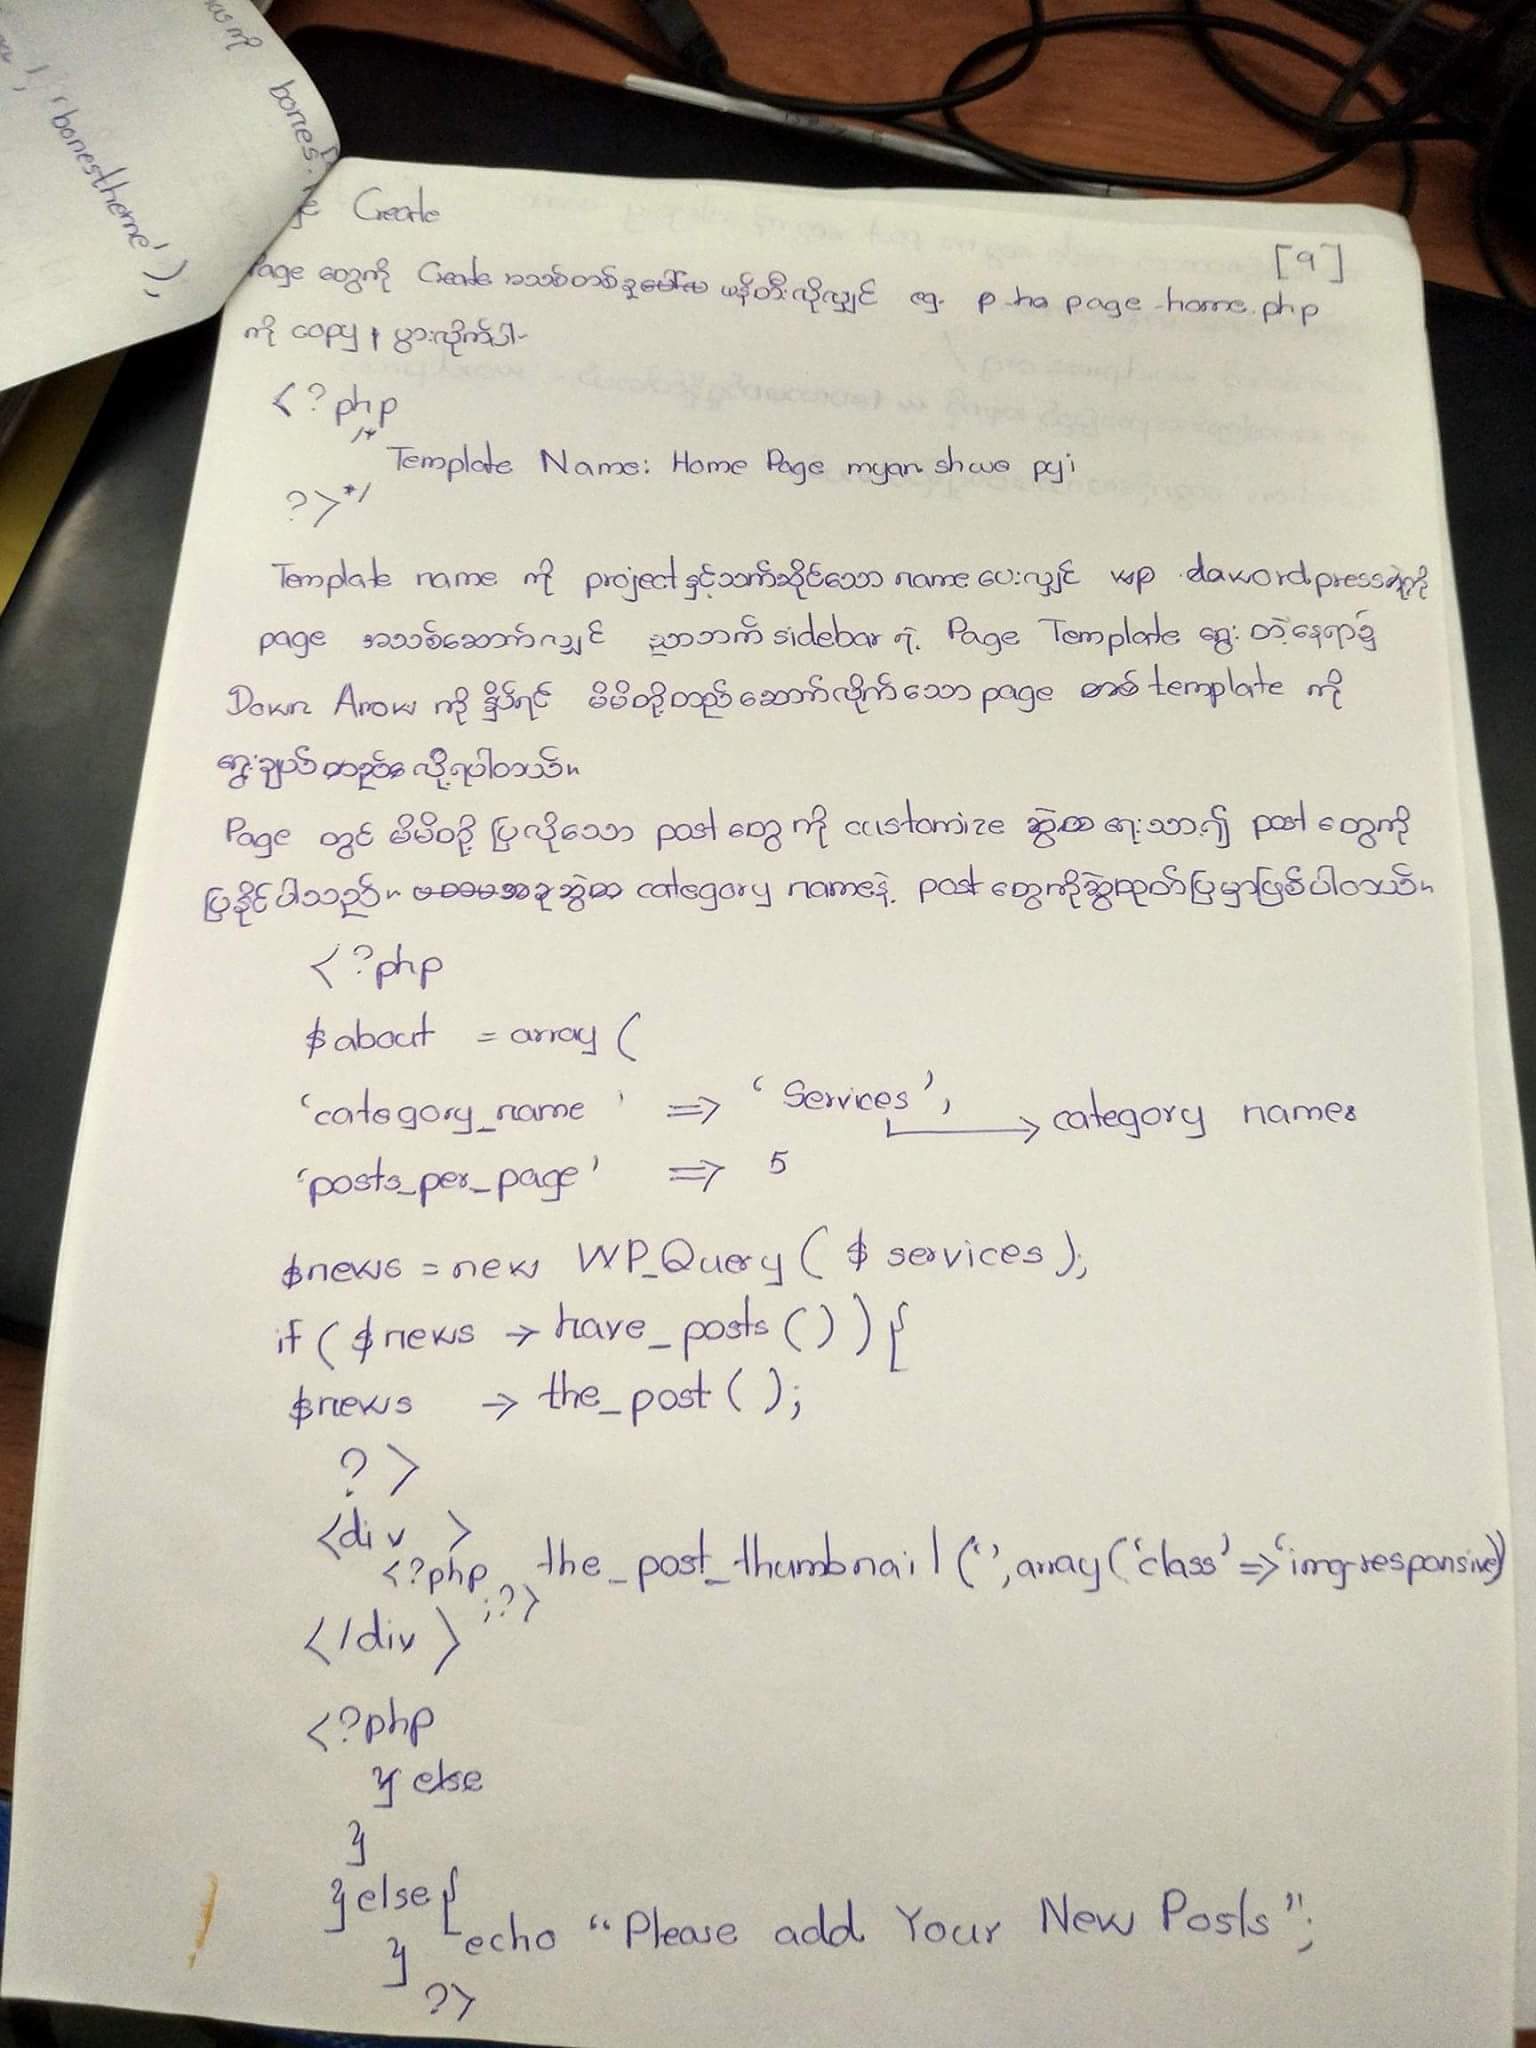 အားကို bones.
', 'bonestheme'),
Create
[9]
Page တွေကို Create အသစ်တစ်ခု ဖန်တီးလိုလျှင် eg. p-ho page-home.php
ကို copy ၊ ပွားလိုက်ပါ-
<?php
/*
Template Name: Home Page myan shwe pyi
?>*/
Template name ကို project နှင့်သက်ဆိုင်သော name ပေးလျှင် wp dawordpressရဲ့ကို
page အသစ်ဆောက်လျှင် ညာဘက် sidebar ရဲ့ Page Template ရွေးတဲ့နေရာ၌
Down Arrow ကို နှိပ်ရင် မိမိတို့တည်ဆောက်လိုက်သော page template ကို
ရွေးချယ် လို့ရပါတယ်။
Page တွင် မိမိတို့ ပြလိုသော post တွေကို customize ဆွဲထ ရေးသား၍ post တွေကို
ပြနိုင်ပါသည်။ category nameနဲ့ post တွေကိုဆွဲထုတ်ပြမှာဖြစ်ပါတယ်။
<?php
$about = array (
'category_name' => 'Services', → category name
'posts_per_page' => 5
$news = new WP_Query ( $ services );
if ( $news -> have_posts ( ) ) {
$news -> the_post ( );
?>
<div >
<?php the_post_thumbnail ('', array ('class' => 'img-responsive))
;?>
</div>
<?php
} else
}
} else {
echo "Please add Your New Posts";
}
?>